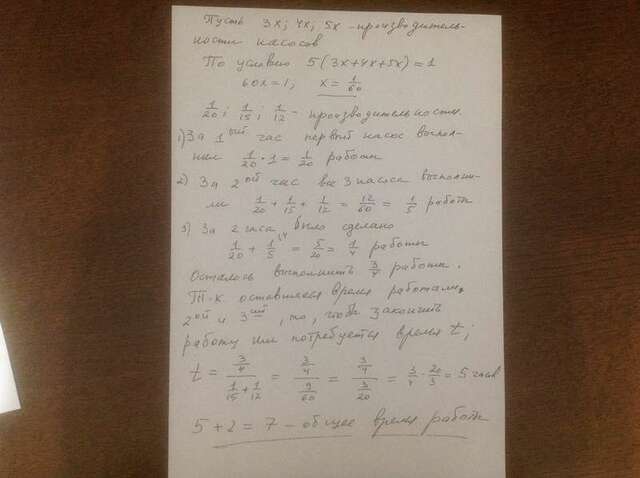 Пусть 3x; 4x; 5x - производитель-
ности насосов
По условию 5(3x+4x+5x)=1
60x=1; x=1/60
1/20; 1/15; 1/12 - производительности.
1) За 1ый час первый насос выпол-
нил 1/20 · 1 = 1/20 работы
2) За 2ой час все 3 насоса выполни-
ли 1/20 + 1/15 + 1/12 = 12/60 = 1/5 работы
3) За 2 часа было сделано
1/20 + 1/5 = 5/20 = 1/4 работы
Осталось выполнить 3/4 работы.
Т.к. оставшееся время работали
2ой и 3ий, то, чтобы закончить
работу им потребуется время t;
t = (3/4)/(1/15 + 1/12) = (3/4)/(9/60) = (3/4)/(3/20) = 3/4 · 20/3 = 5 часов
5 + 2 = 7 - общее время работы